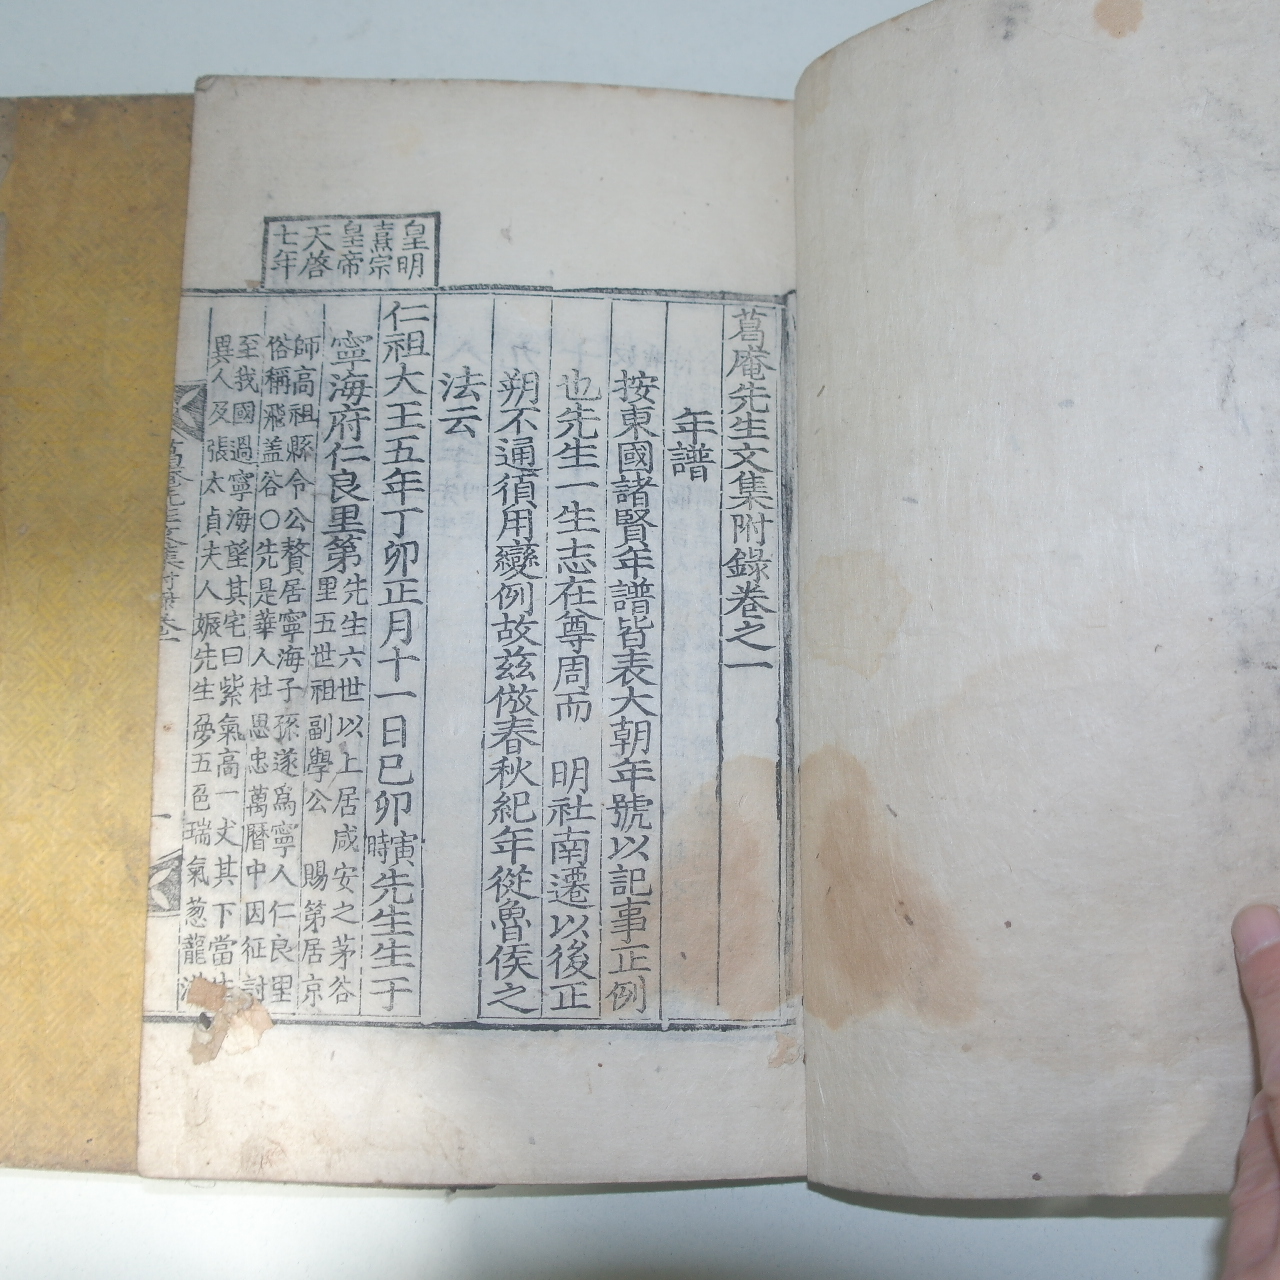 皇明
熹宗
皇帝
天啓
七年
葛庵先生文集附錄卷之一
年譜
按東國諸賢年譜皆表大朝年號以記事正例
也先生一生志在尊周而 明社南遷以後正
朔不通須用變例故玆倣春秋紀年從魯侯之
法云
仁祖大王五年丁卯正月十一日己卯寅時先生生于
寧海府仁良里第先生六世以上居咸安之茅谷
里五世祖副學公 賜第居京
師高祖縣令公贅居寧海子孫遂爲寧人仁良里
俗稱飛盖谷○先是華人杜思忠萬曆中因征討
至我國過寧海望其宅曰紫氣高一丈其下當生
異人及張太貞夫人娠先生夢五色瑞氣葱蘢
葛庵先生文集附錄卷一
一